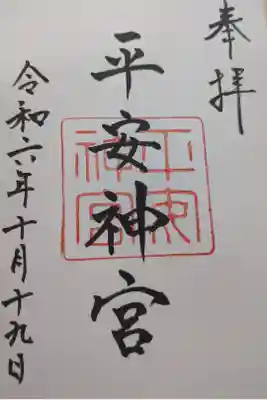 奉拝
平安神宮
平安神宮
令和六年十月十九日